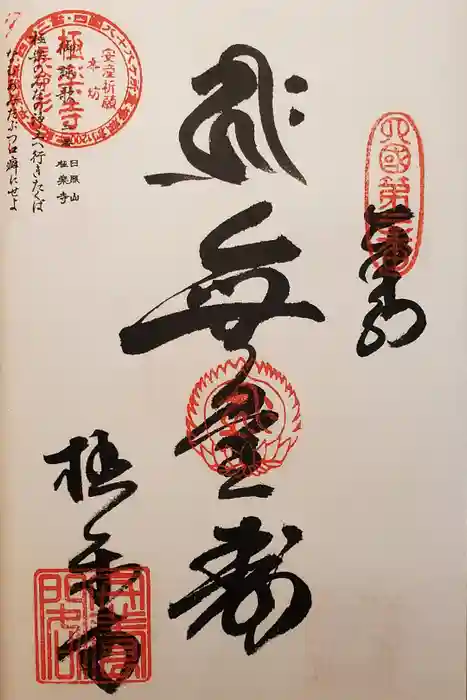 四國第二番
奉納
𑖮𑖿𑖨𑖱𑖾
無量壽
極楽寺
安産祈願
本坊
極楽寺
御詠歌
二番 日照山 極楽寺
極楽の弥陀の浄土へ行きたくば
なむあみだぶつ口癖にせよ